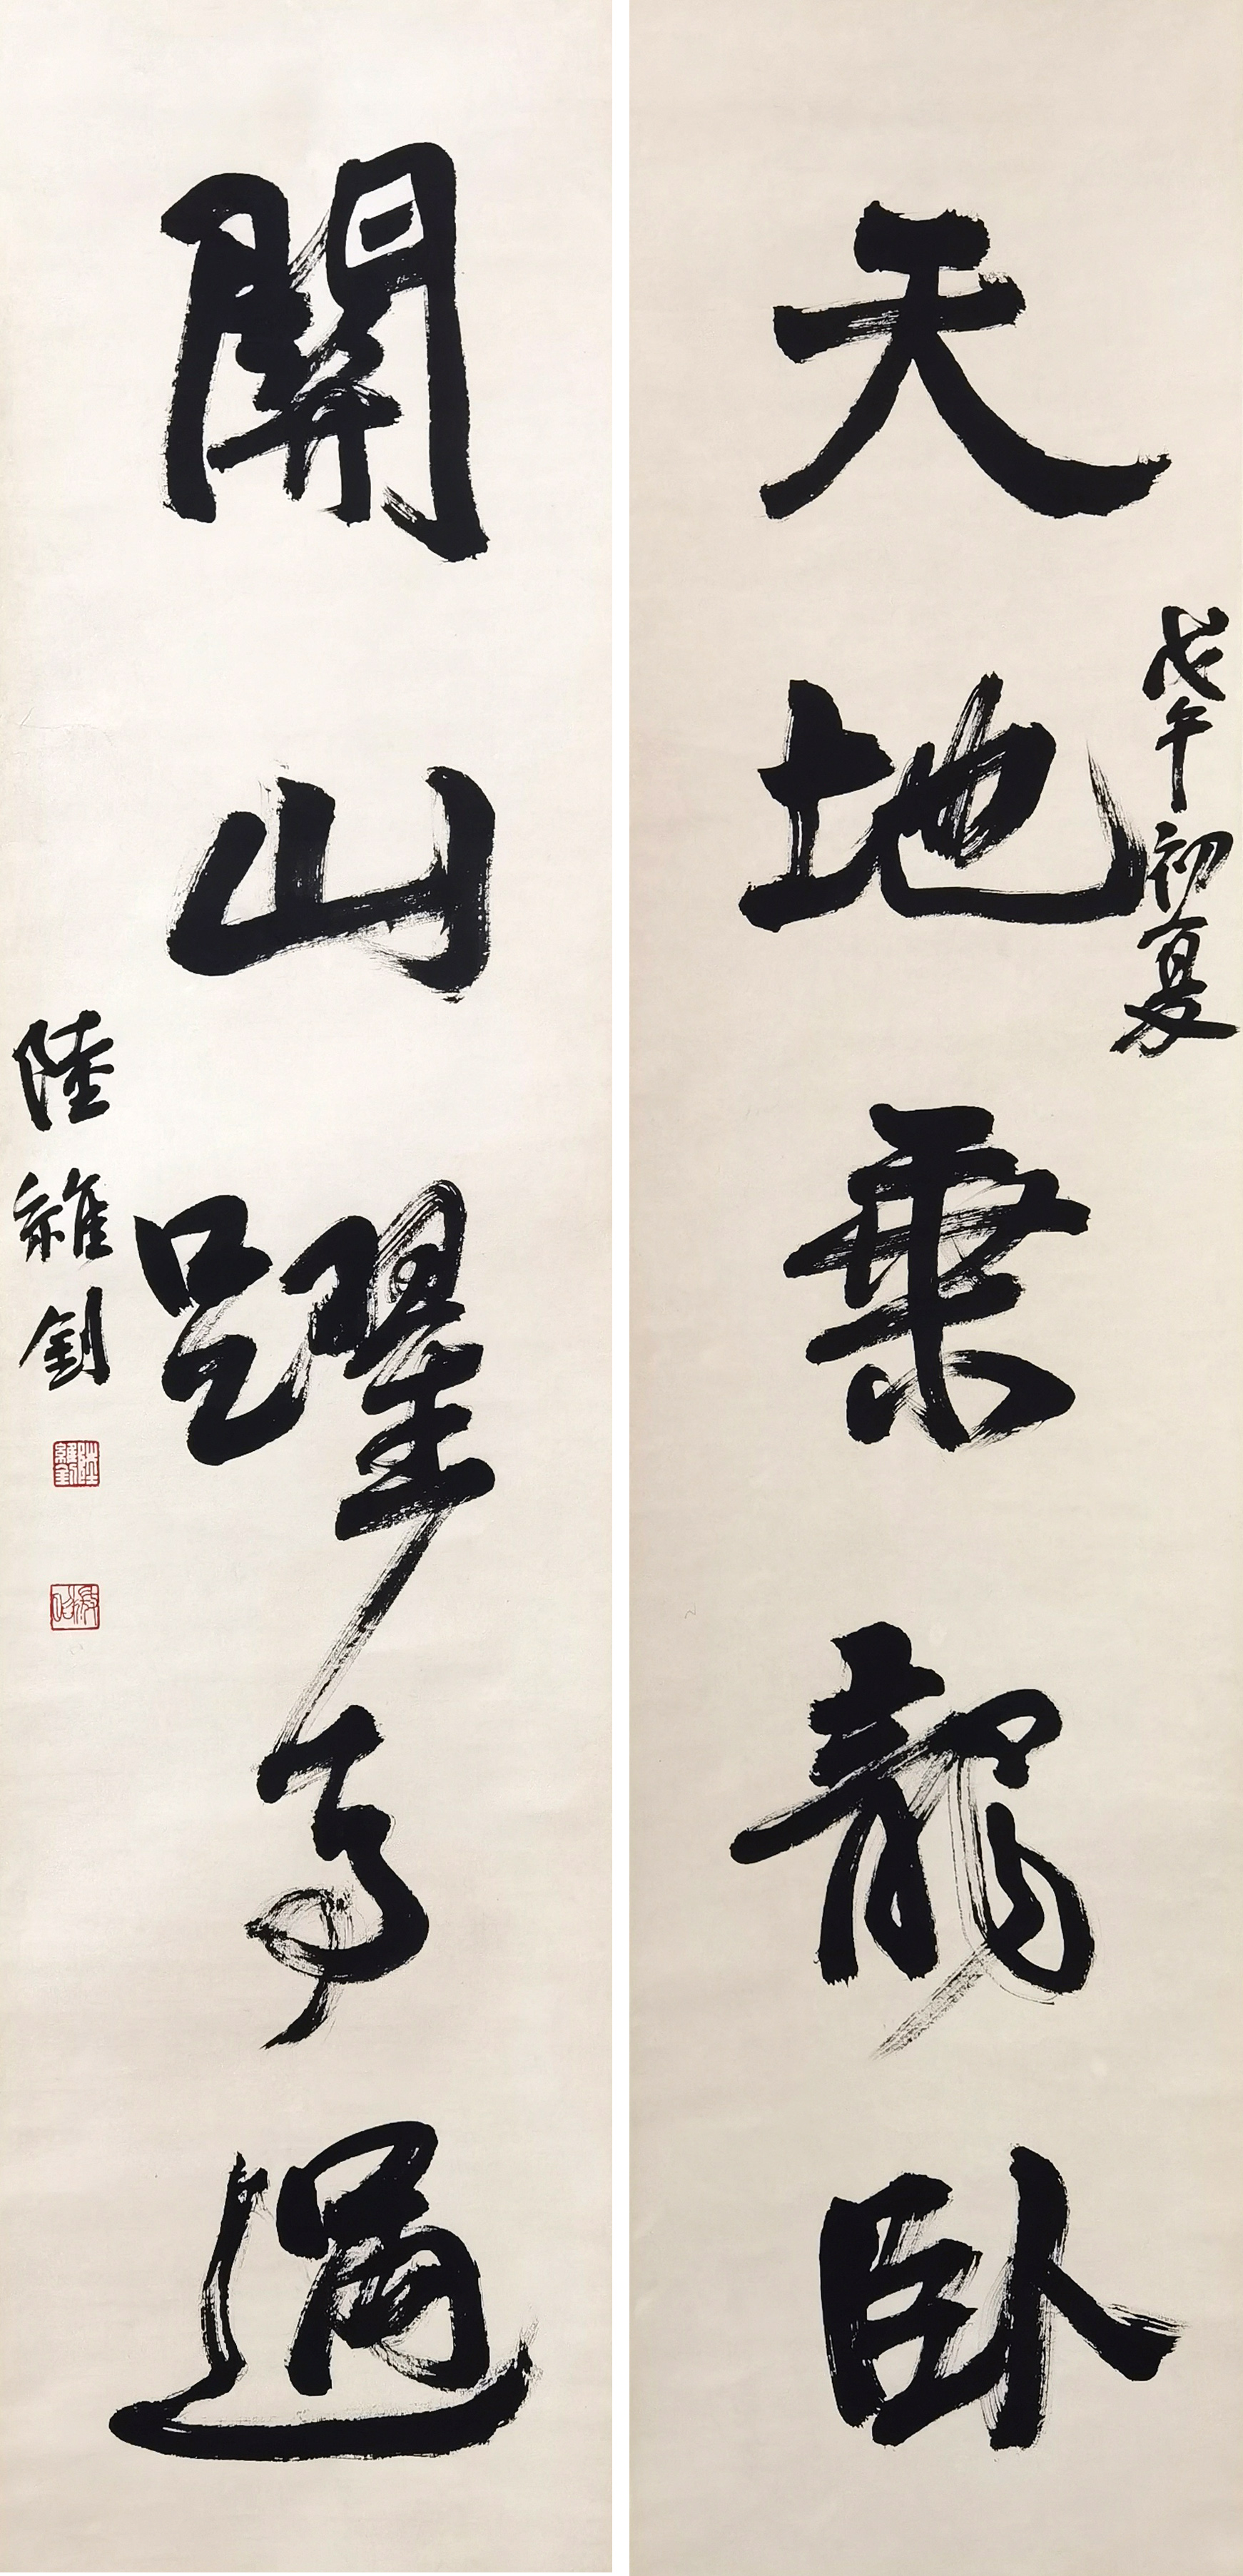 天地乘龍卧
戊午初夏
關山躍馬過
陸維釗
陸維釗